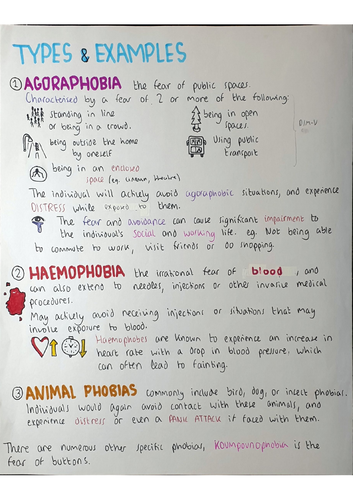 TYPES & EXAMPLES
① AGORAPHOBIA the fear of public spaces.
Characterised by a fear of 2 or more of the following:
standing in line
or being in a crowd.
being in open
spaces.
DSM-V
being outside the home
by oneself
Using public
transport
being in an enclosed
space (eg. cinema, theatre)
The individual will actively avoid agoraphobic situations, and experience
DISTRESS while exposed to them.
The fear and avoidance can cause significant impairment to
the individual's social and working life. eg. Not being able
to commute to work, visit friends or do shopping.
② HAEMOPHOBIA the irrational fear of blood, and
can also extend to needles, injections or other invasive medical
procedures.
May actively avoid receiving injections or situations that may
involve exposure to blood.
Haemophobes are known to experience an increase in
heart rate with a drop in blood pressure, which
can often lead to fainting.
③ ANIMAL PHOBIAS commonly include bird, dog, or insect phobias.
Individuals would again avoid contact with these animals, and
experience distress or even a PANIC ATTACK if faced with them.
There are numerous other specific phobias, Koumpounophobia is the
fear of buttons.